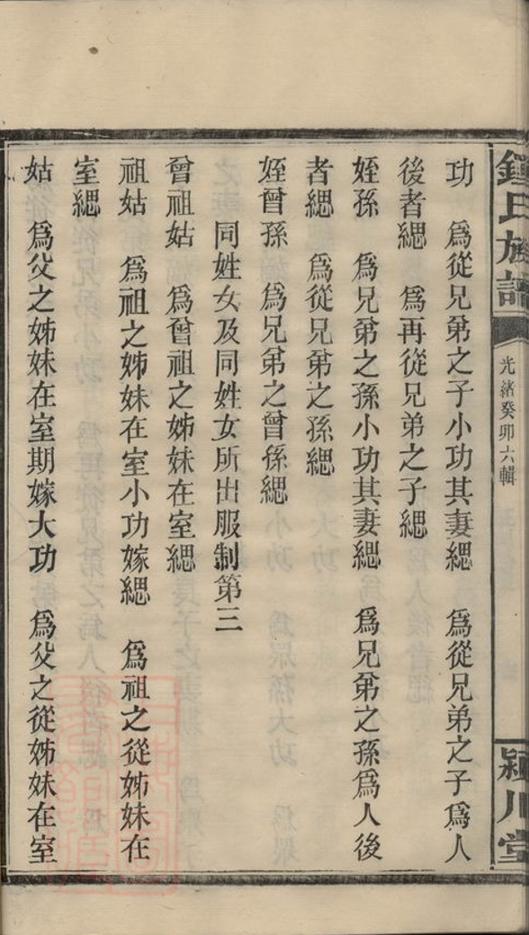 鍾氏族譜 光緒癸卯六輯 潁川堂
功 為從兄弟之子小功其妻緦 為從兄弟之子為人
後者緦 為再從兄弟之子緦
姪孫 為兄弟之孫小功其妻緦 為兄弟之孫為人後
者緦 為從兄弟之孫緦
姪曾孫 為兄弟之曾孫緦
同姓女及同姓女所出服制第三
曾祖姑 為曾祖之姊妹在室緦
祖姑 為祖之姊妹在室小功嫁緦 為祖之從姊妹在
室緦
姑 為父之姊妹在室期嫁大功 為父之從姊妹在室